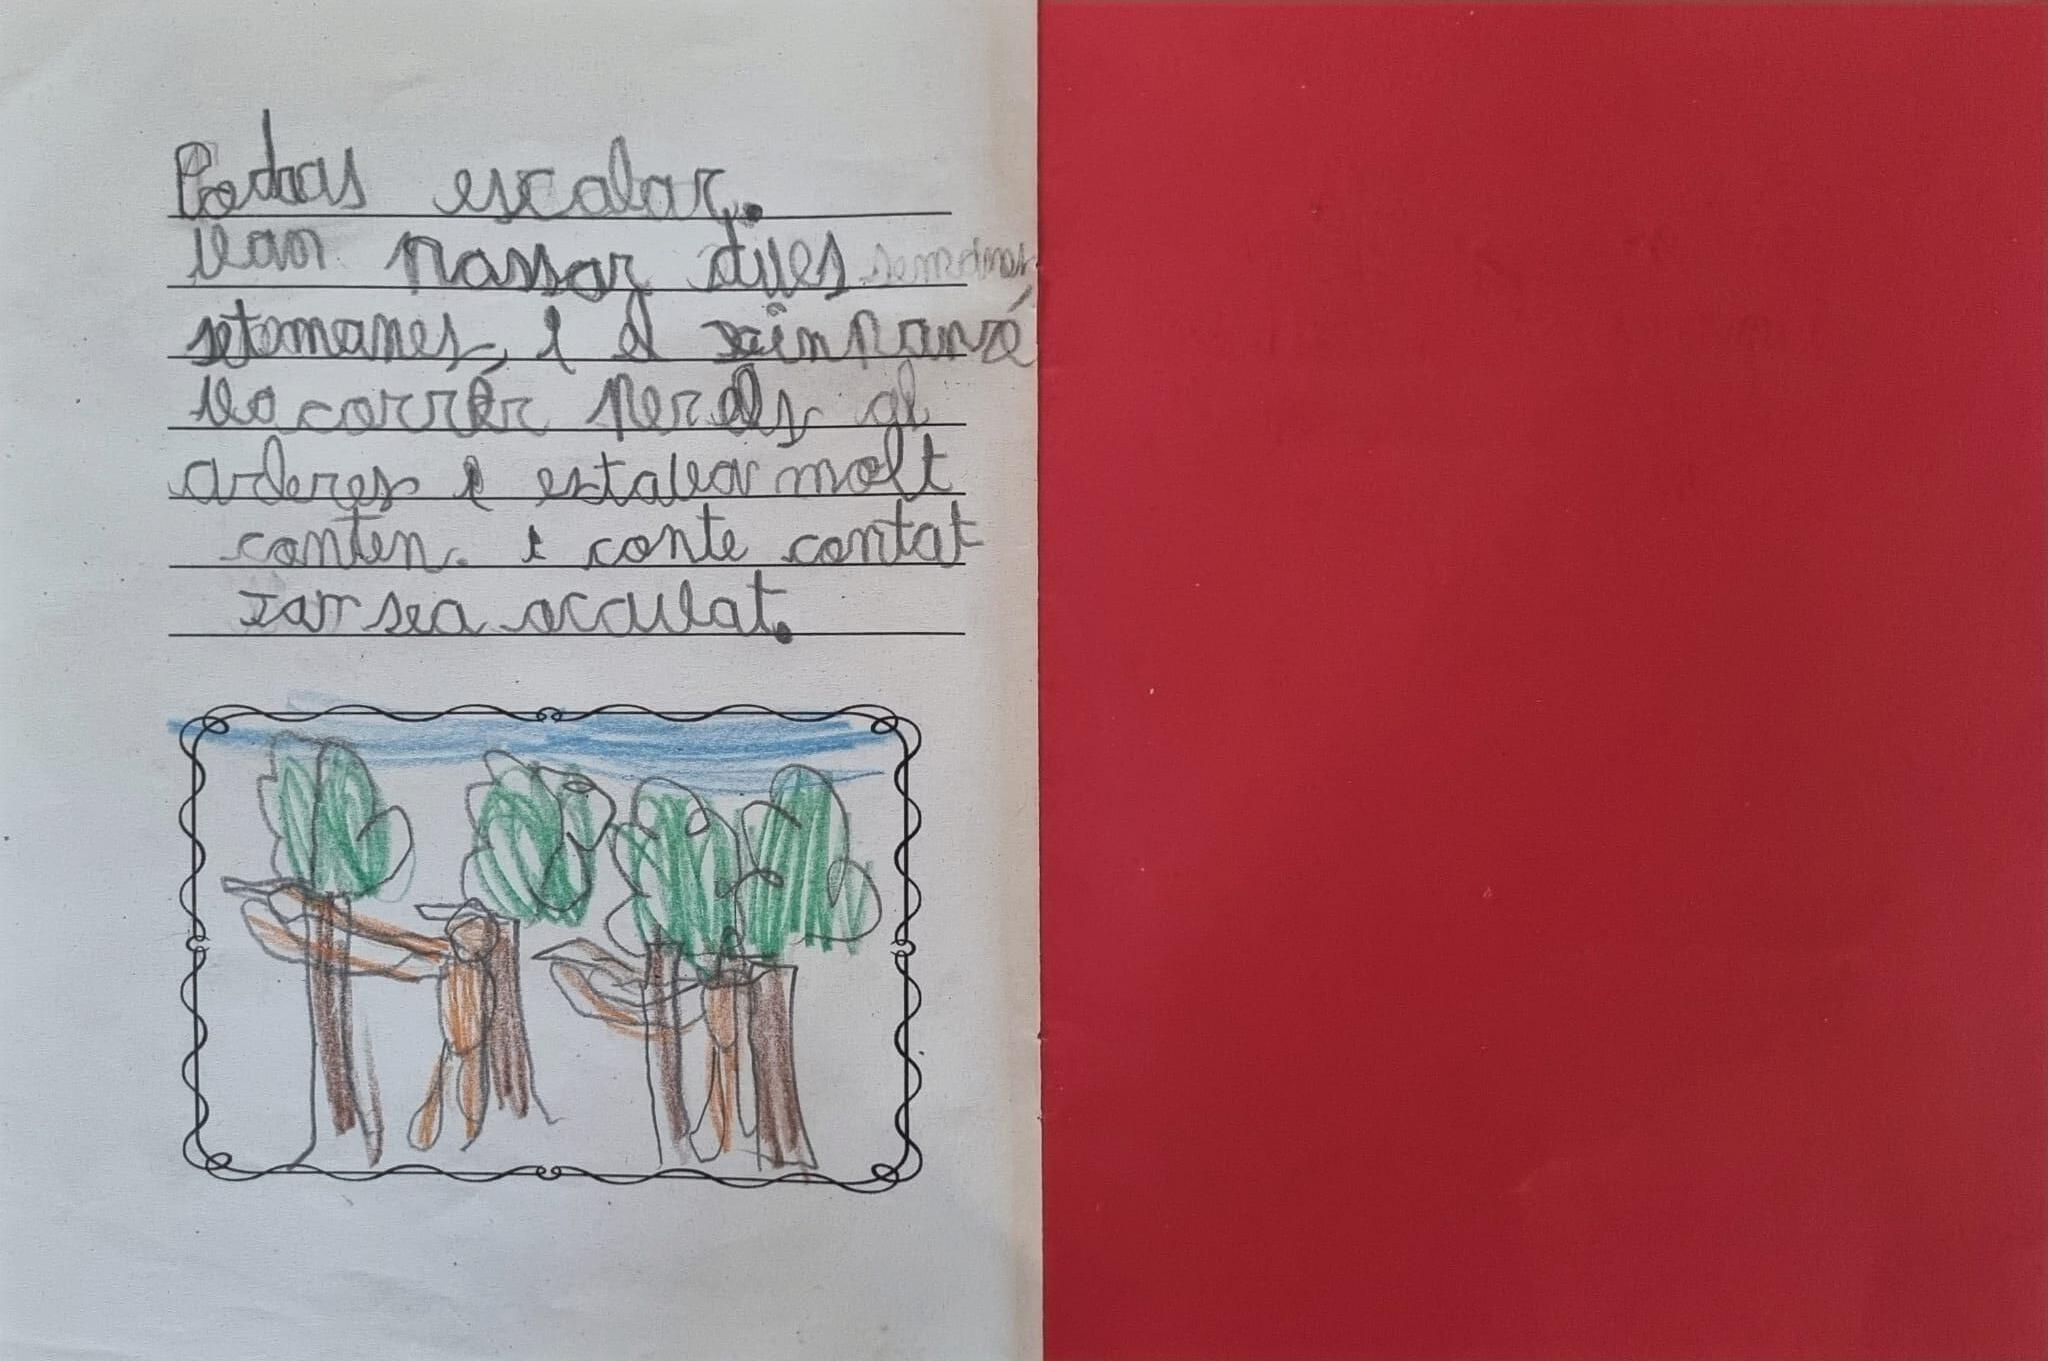 Podras escalar.
van passar dues
setemanes, i el ximpanzé
va corrër per els al
arberes i estava molt
conten. i conte contat
ian sea acavat.